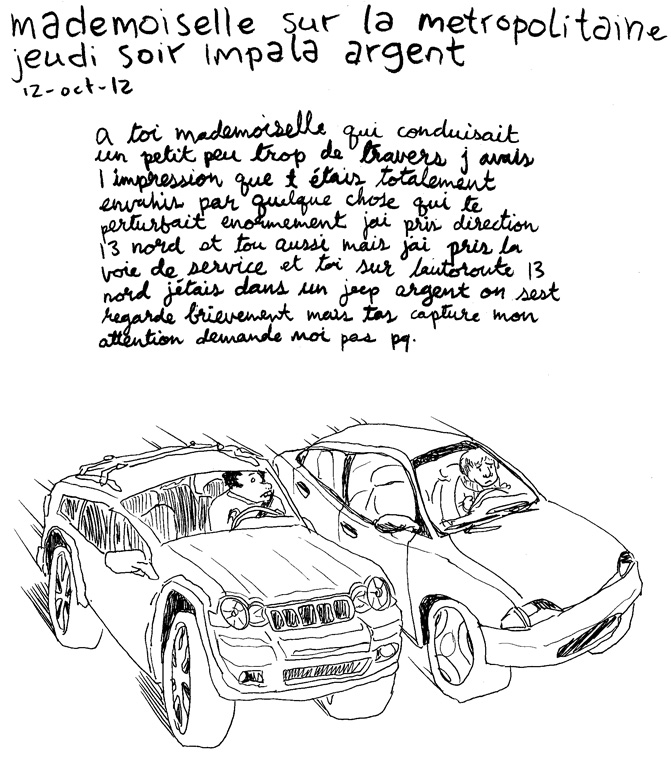 mademoiselle sur la metropolitaine
jeudi soir impala argent
12-oct-12
a toi mademoiselle qui conduisait
un petit peu trop de travers j avais
l impression que t étais totalement
envahis par quelque chose qui te
perturbait enormement jai pris direction
13 nord et tou aussi mais jai pris la
voie de service et toi sur lautoroute 13
nord jétais dans un jeep argent on sest
regarde brievement mais tas capture mon
attention demande moi pas pq.